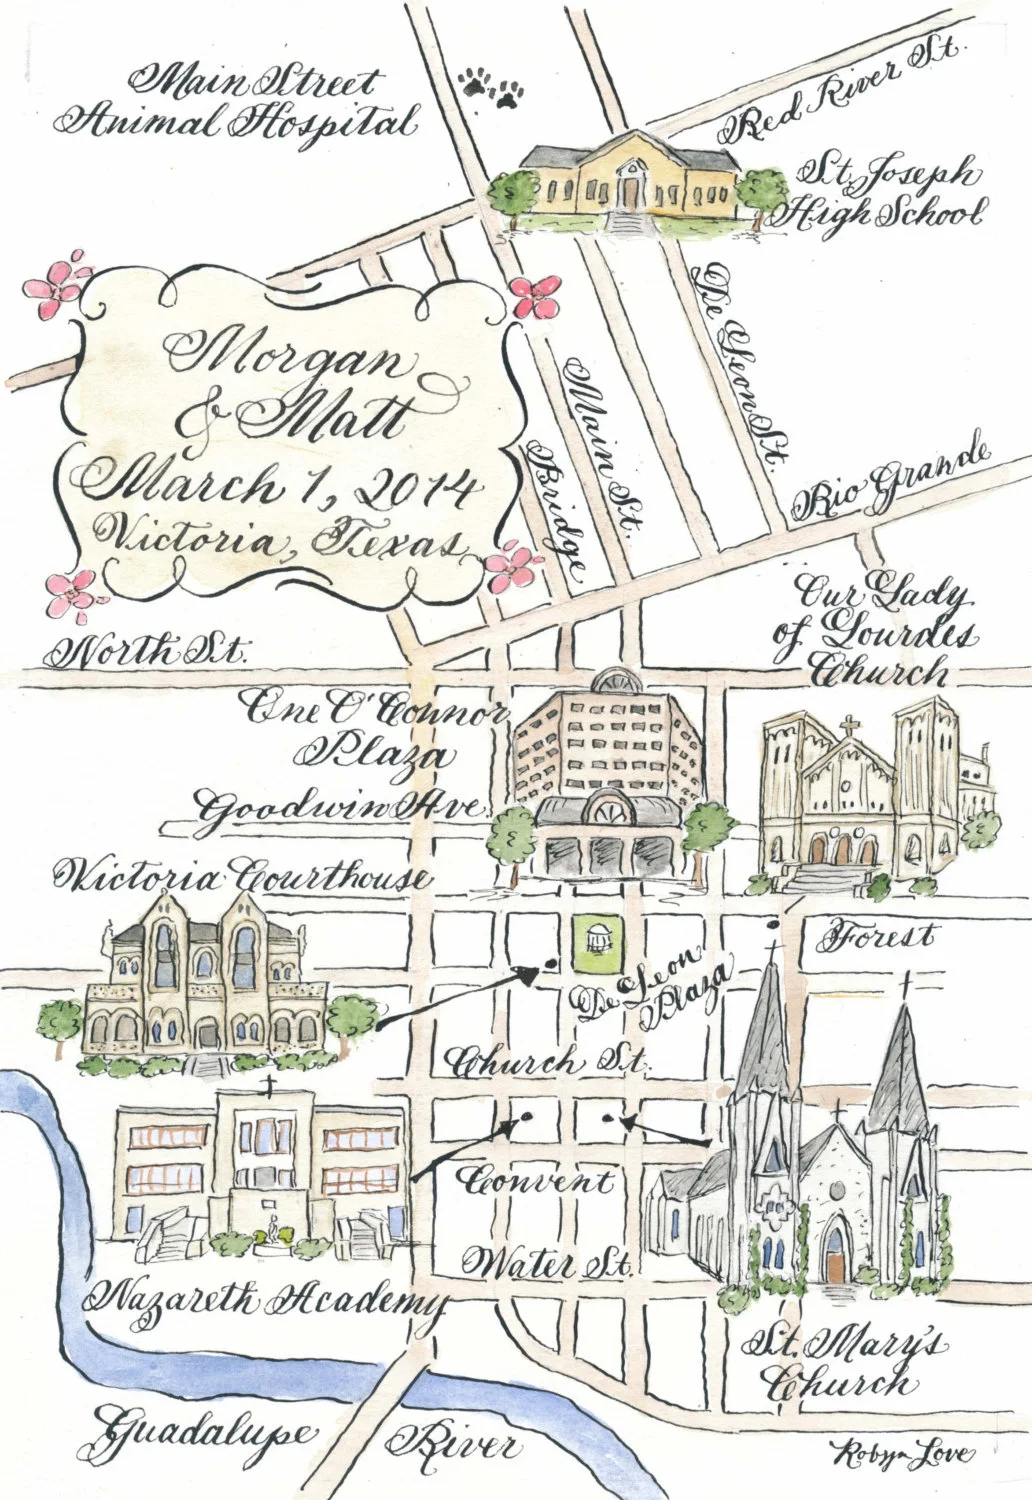 Main Street
Animal Hospital
Red River St.
St. Joseph
High School
De Leon St.
Main St.
Bridge
Rio Grande
Morgan
& Matt
March 1, 2014
Victoria, Texas
North St.
Our Lady
of Lourdes
Church
One O'Connor
Plaza
Goodwin Ave.
Victoria Courthouse
Forest
De Leon
Plaza
Church St.
Convent
Water St.
Nazareth Academy
St. Mary's
Church
Guadalupe River
Robyn Love